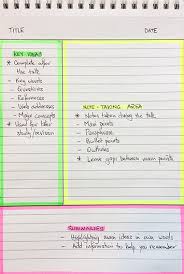 TITLE DATE
KEY IDEAS
* Complete after
the talk
- Key words
- Questions
- References
- Web addresses
- Major concepts
* Used for later
study/revision
NOTE-TAKING AREA
* Notes taken during the talk
- Main points
- Paraphrase
- Bullet points
- Outlines
* Leave gaps between main points
SUMMARIES
- Highlighting main ideas in own words
- Add information to help you remember